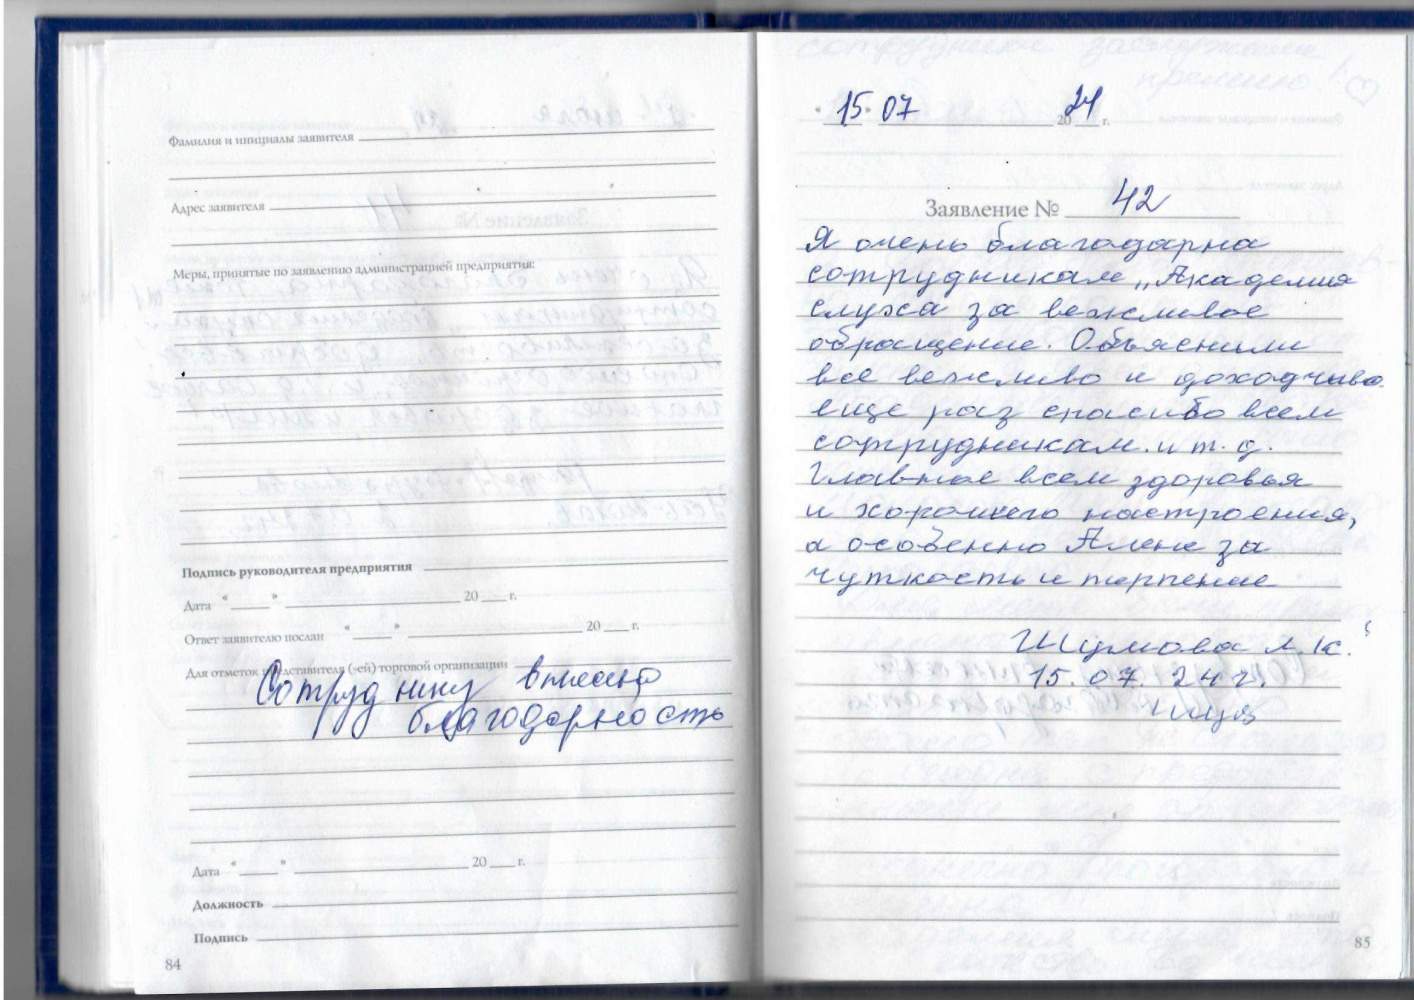 Фамилия и инициалы заявителя
Адрес заявителя
Меры, принятые по заявлению администрацией предприятия:
Подпись руководителя предприятия
Дата " " 20 г.
Ответ заявителю послан " " 20 г.
Для отметок представителя (-ей) торговой организации
Сотруднику
благодарность
Дата " " 20 г.
Должность
Подпись
84
" 15 " 07 2024 г.
Заявление № 42
Я очень благодарна
сотрудникам „Академия
слуха за вежливое
обращение. Объяснили
все вежливо и доходчиво.
еще раз спасибо всем
сотрудникам. и т. д.
Главное всем здоровья
и хорошего настроения,
а особенно Алене за
чуткость и терпение
Шумова Л. К.
15. 07. 24 г.
85